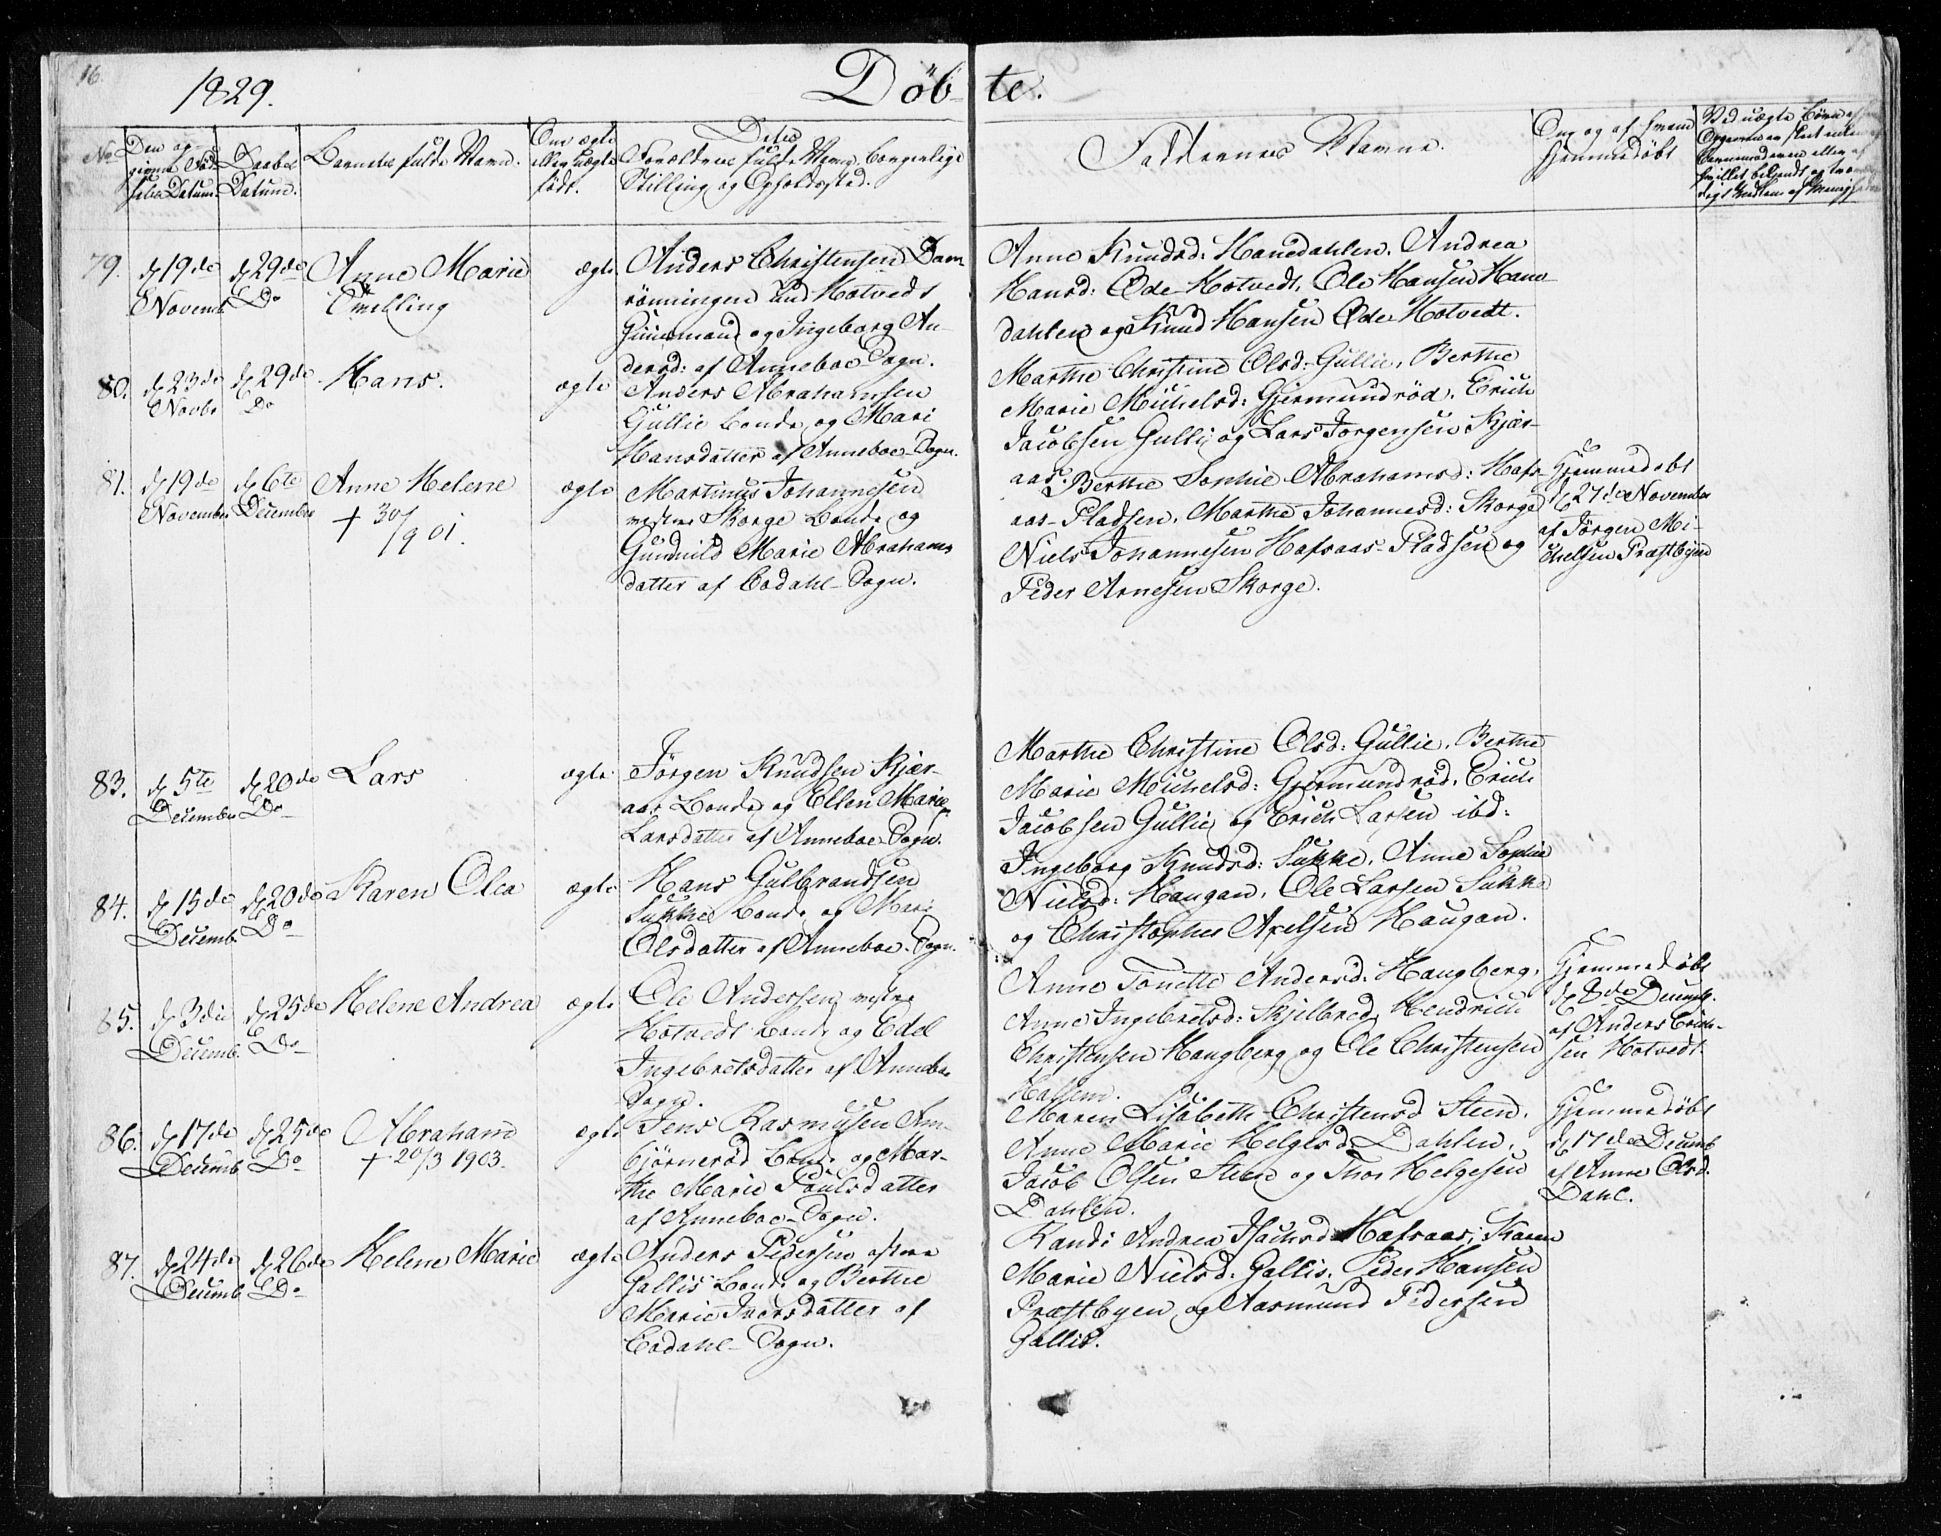 16.
1829.
Döbte.
No.
Den angivne Födsels Datum.
Daabs Datum.
Barnets fulde Navn.
Om ægte eller uægte födt.
Dets Forældres fulde Navn, borgerlige Stilling og Opholdssted.
Faddernes Navne.
Om og af hvem hjemmedöbt
Ved uægte Börn
79. d 19de Novemb. d 29de Do Anne Marie Tvilling ægte
Anders Christensen Dam-
rönningen und Hotvedt
Huusmand og Ingeborg An-
dersd: af Anneboe Sogn.
Anne Knudsd: Hanedahlen, Andrea
Hansd: Öde Hotvedt, Ole Hansen Hane-
dahlen og Knud Hansen Öde Hotvedt.
80. d 23de Novbr d 29de Do Hans. ægte
Anders Abrahamsen
Gullie Bonde og Mari
Hansdatter af Anneboe Sogn.
Marthe Christine Olsd: Gullie, Berthe
Marie Michelsd: Gjermundröd, Erich
Jacobsen Gulli og Lars Jörgensen Kjær-
aas.
81. d 19de November d 6te December Anne Helene ægte
+ 30/9 01.
Martinus Johannesen
vestre Skorge Bonde og
Gunnild Marie Abrahams
datter af Bodahl Sogn.
Berthe Sophie Abrahamsd: Hafs-
aas-Pladsen, Marthe Johannesd: Skorge
Niels Johannesen Hafsaas-Pladsen og
Peder Arnesen Skorge.
Hjemmedöbt
d 27de November
af Jörgen Mi-
chelsen Præstbyen
83. d 5te December d 20de Do Lars ægte
Jörgen Knudsen Kjær-
aas Bonde og Ellen Marie
Larsdatter af Anneboe Sogn.
Marthe Christine Olsd: Gullie, Berthe
Marie Michelsd: Gjermundröd, Erich
Jacobsen Gullie og Erich Larsen ibd:
84. d 15de Decemb. d 20de Do Karen Olea ægte
Hans Gulbrandsen
Sukke Bonde og Mari
Olsdatter af Anneboe Sogn.
Ingeborg Knudsd: Sukke, Anne Sophie
Nielsd: Haugan, Ole Larsen Sukke
og Christopher Axelsen Haugan.
85. d 3die Decemb. d 25de Do Helene Andrea ægte
Ole Andersen vestre
Hotvedt Bonde og Edel
Ingebretsdatter af Anneboe
Sogn.
Anne Tonette Andersd: Haugberg,
Anne Ingebretsd: Skjelbred, Hendrich
Christensen Haugberg og Ole Christensen
Halsen.
Hjemmedöbt
d 8de Decemb.
af Anders Erich-
sen Hotvedt.
86. d 17de Decemb d 25de Do Abraham ægte
+ 20/3 1903.
Jens Rasmusen Am-
björneröd Bonde og Mar-
the Marie Poulsdatter
af Anneboe Sogn.
Maren Lisabeth Christensd Steen,
Anne Marie Helgesd: Dahlen,
Jacob Olsen Steen og Thor Helgesen
Dahlen.
Hjemmedöbt
d 17de Decemb
af Anne Olsd.
Dahl.
87. d 24de Decemb d 26de Do Helene Marie ægte
Anders Pedersen östre
Gallis Bonde og Berthe
Marie Iversdatter af
Bodahl Sogn.
Randi Andrea Isachsd: Hafsaas, Karen
Marie Nielsd: Gallis, Peder Hansen
Præstbyen og Aasmund Pedersen
Gallis.